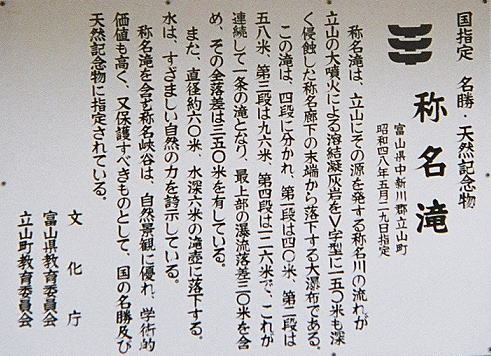 国指定 名勝・天然記念物
称名滝
富山県中新川郡立山町
昭和四八年五月二九日指定
称名滝は、立山にその源を発する称名川の流れが
立山の大噴火による溶結凝灰岩をV字型に二五〇米も深
く侵蝕した称名廊下の末端から落下する大瀑布である。
この滝は、四段に分かれ、第一段は四〇米、第二段は
五八米、第三段は九六米、第四段は一二六米で、これが
連続して一条の滝となり、最上部の瀑流落差三〇米を含
め、その全落差は三五〇米を有している。
また、直径約六〇米、水深六米の滝壺に落下する。
水は、すざましい自然の力を誇示している。
称名滝を含む称名峡谷は、自然景観に優れ、学術的
価値も高く、又保護すべきものとして、国の名勝及び
天然記念物に指定されている。
文化庁
富山県教育委員会
立山町教育委員会